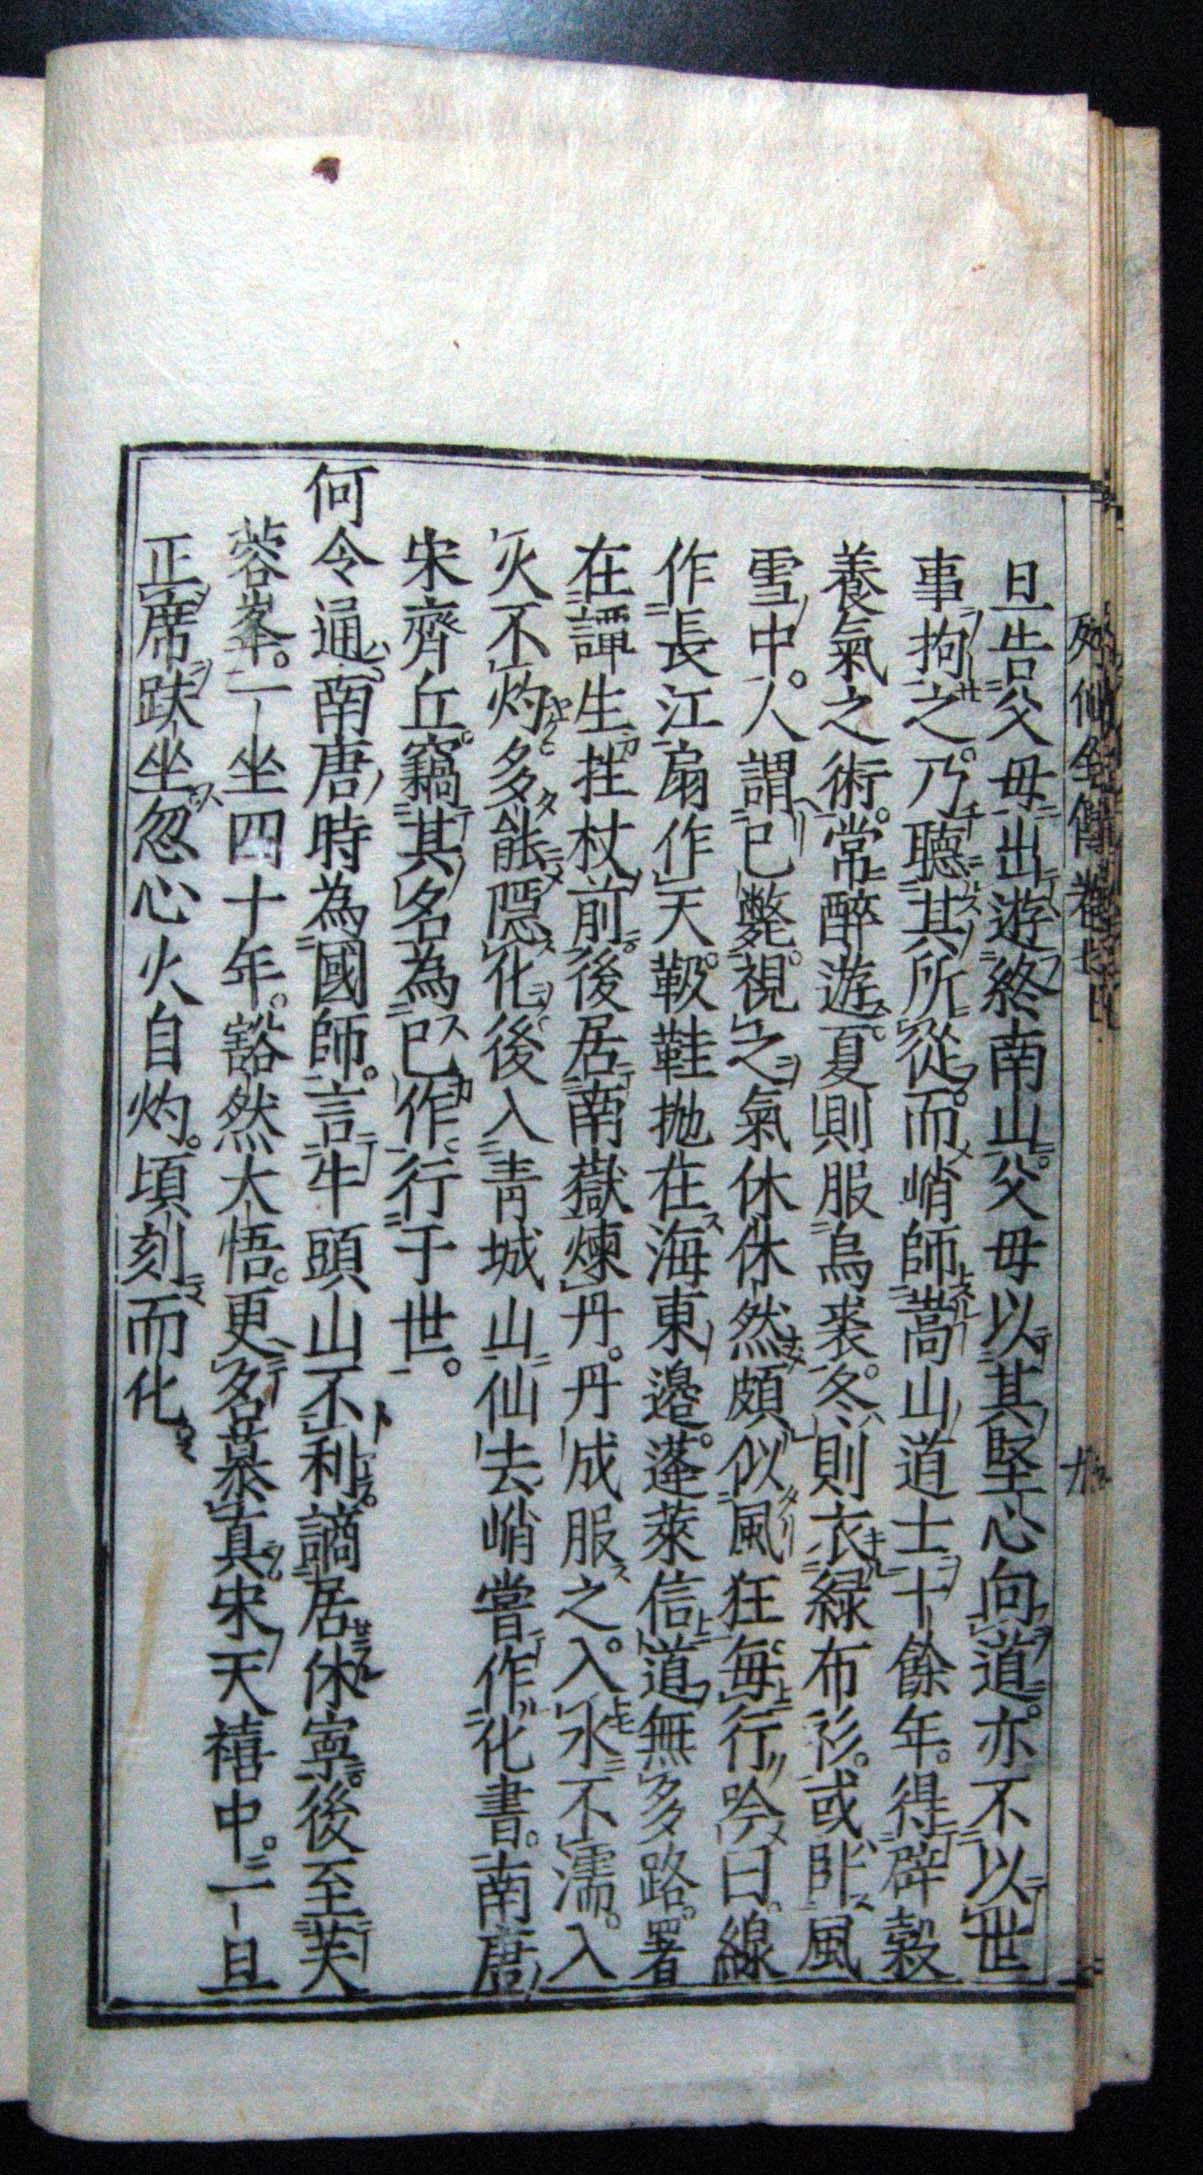 旦告父母出遊終南山。父母以其堅心向道。亦不以世
事拘之。乃聽其所從。而峭師嵩山道士十餘年。得辟穀
養氣之術。常醉遊。夏則服烏裘。冬則衣緑布衫。或卧風
雪中。人謂已斃。視之氣休休然。頗似風狂。每行吟曰。線
作長江扇作天。靸鞋抛在海東邉。蓬萊信道無多路。署
在譚生拄杖前。後居南嶽煉丹。丹成服之。入水不濡。入
火不灼。多能隠化。後入青城山仙去。峭嘗作化書。南唐
宋齊丘。竊其名為巳作。行于世。
何令通南唐時為國師。言牛頭山不利。謫居休寧。後至芙
蓉峯。一坐四十年。豁然大悟。更名慕真。宋天禧中。一旦
正席趺坐。忽心火自灼。頃刻而化。
列仙全傳卷七